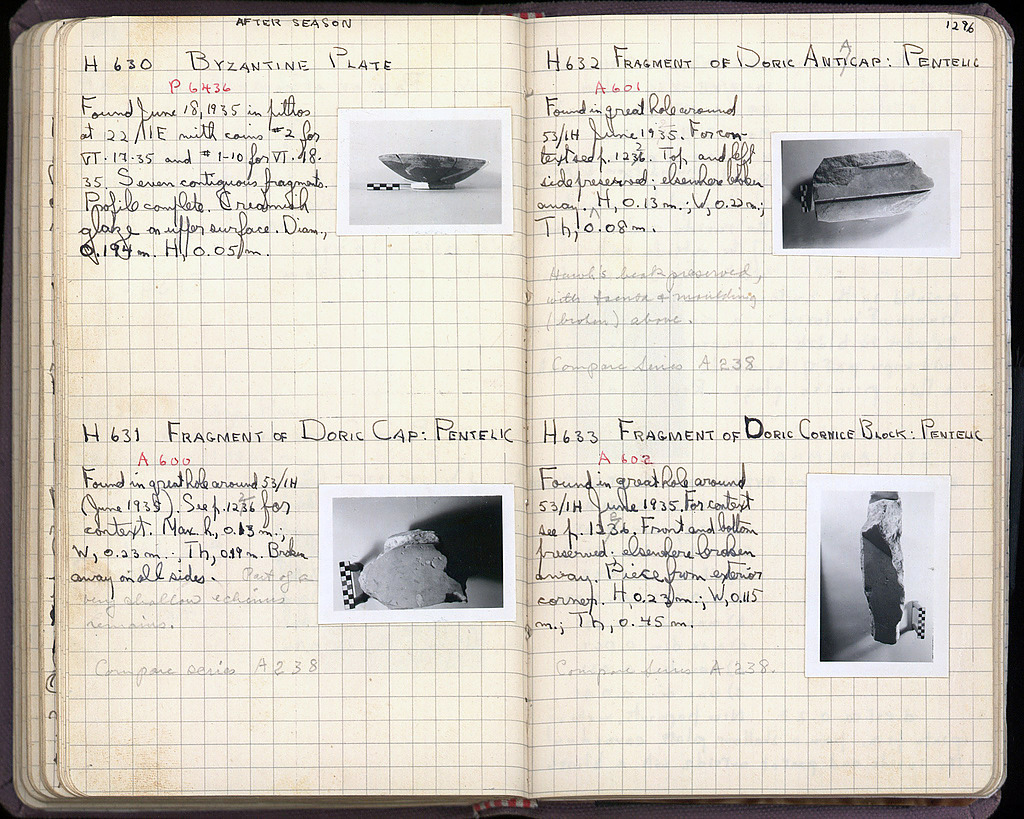 AFTER SEASON
H 630 BYZANTINE PLATE
P 6436
Found June 18, 1935 in pithos
at 22/ΙΕ with coins #2 for
VI·17·35 and #1-10 for VI·18·
35. Seven contiguous fragments.
Profile complete. Greenish
glaze on upper surface. Diam.,
0.194 m. H, 0.05 m.
H 631 FRAGMENT OF DORIC CAP: PENTELIC
A 600
Found in great hole around 53/ΙΗ
(June 1935). See p. 1236 for
context. Max. h, 0.13 m.;
W, 0.23 m.; Th, 0.19 m. Broken
away on all sides. Part of a
very shallow echinus
remains.
Compare series A 238
1296
H 632 FRAGMENT OF DORIC ANTA CAP: PENTELIC
A 601
Found in great hole around
53/ΙΗ June 1935. For con-
text see p. 1236. Top and left
side preserved; elsewhere broken
away. H, 0.13 m.; W, 0.22 m.;
Th, 0.08 m.
Hawk's beak preserved,
with & moulding
(broken) above.
Compare Series A 238
H 633 FRAGMENT OF DORIC CORNICE BLOCK: PENTELIC
A 602
Found in great hole around
53/ΙΗ June 1935. For context
see p. 1236. Front and bottom
preserved; elsewhere broken
away. Piece from exterior
corner. H, 0.23 m.; W, 0.115
m.; Th, 0.45 m.
Compare Series A 238.